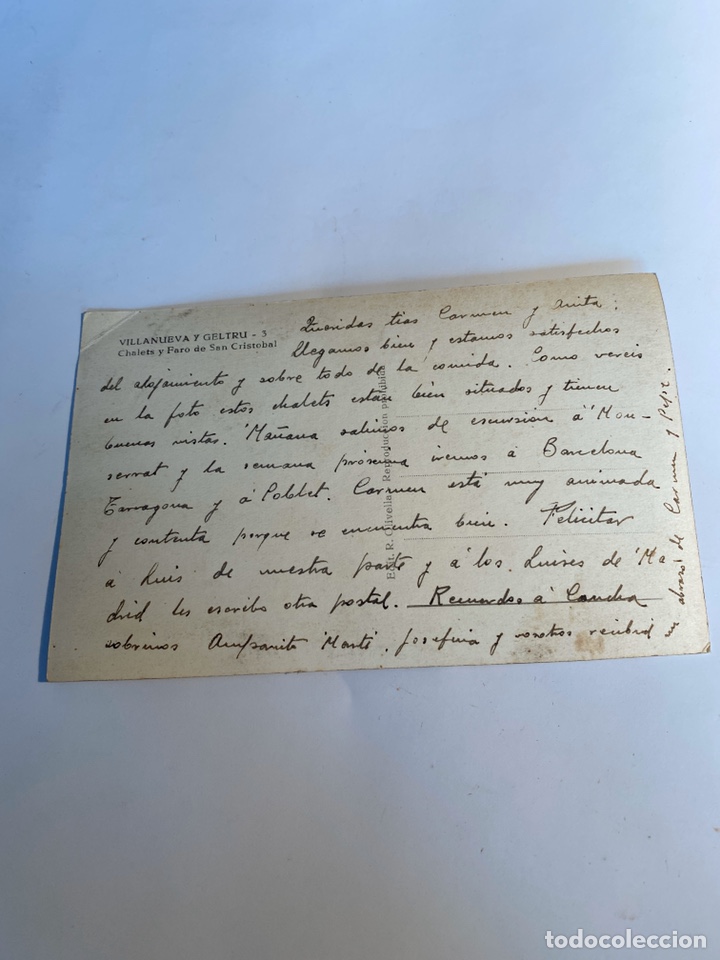 VILLANUEVA Y GELTRU - 3
Chalets y Faro de San Cristobal
Queridas tias Carmen y Anita:
Llegamos bien y estamos satisfechos
del alojamiento y sobre todo de la comida. Como vereis
en la foto estos chalets están bien situados y tienen
buenas vistas. Mañana salimos de escursión á Mon-
serrat y la semana próxima iremos á Barcelona
Tarragona y á Poblet. Carmen está muy animada
y contenta porque se encuentra bien. Felicitar
á Luis de nuestra parte y á los Luises de Ma
drid les escribo otra postal. Recuerdos á Concha
sobrinos Amparito Josefina y vosotros recibid
un abrazo de Carmen y Pepe.
Edit. R. Olivella. Reproducción prohibida
todocoleccion